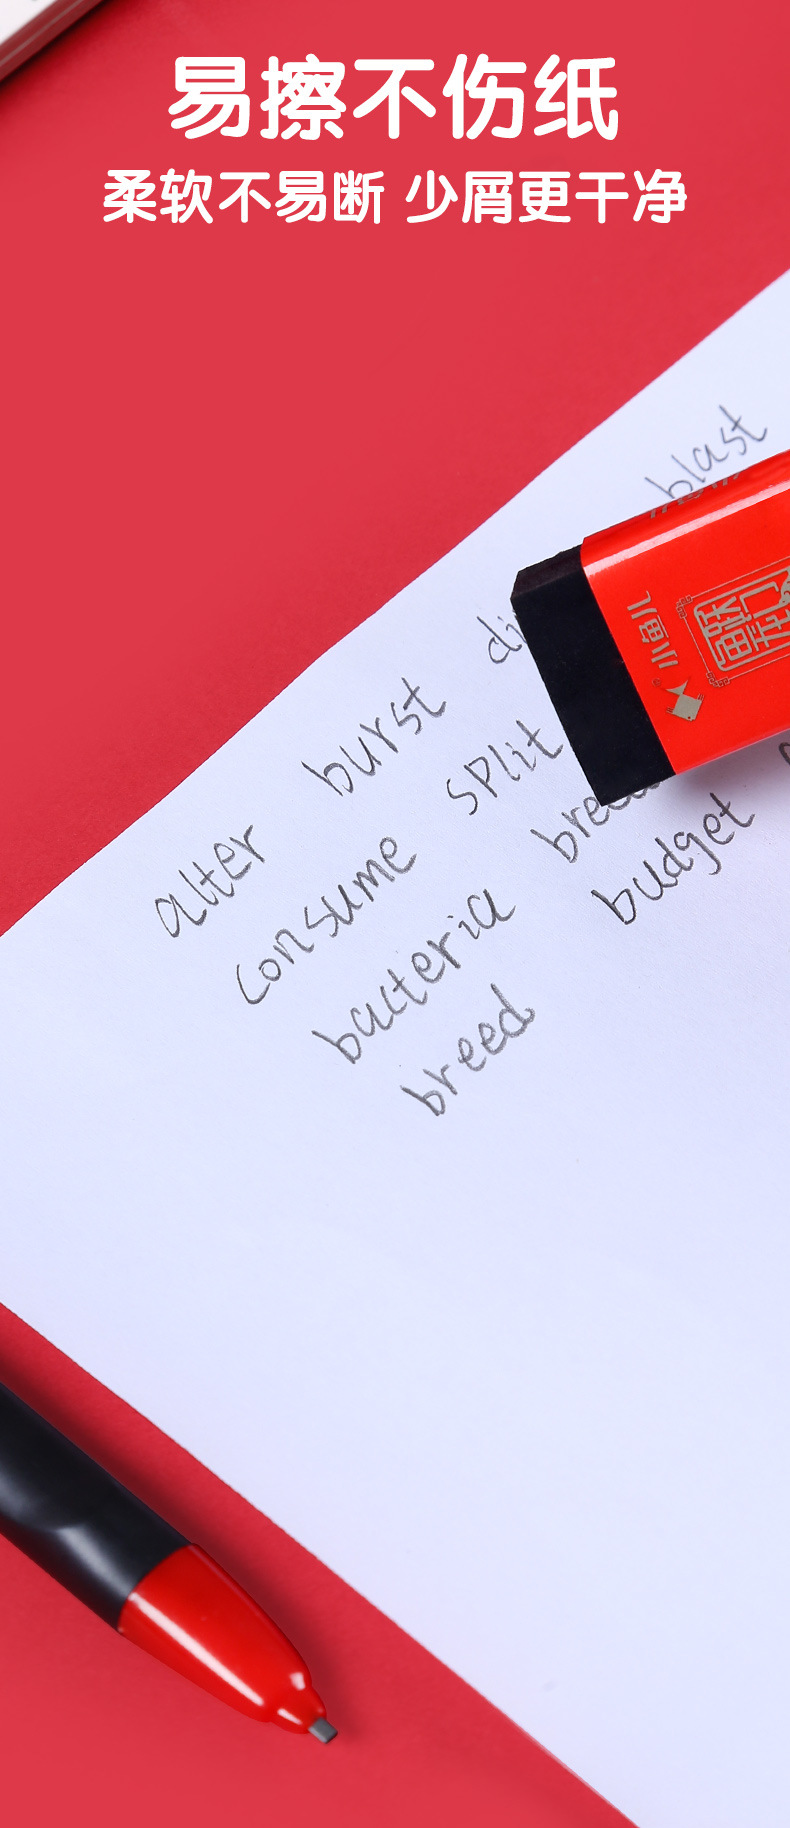 易擦不伤纸
柔软不易断 少屑更干净
blast
burst
split
alter
consume
budget
bacteria
breed
小鱼儿